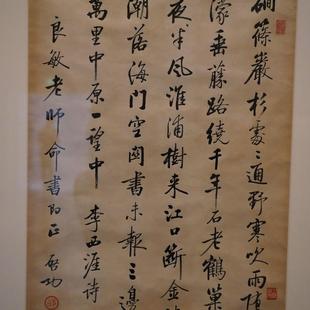 磵篠巖杉處〻通野寒吹雨墮
濛垂藤路繞千年石老鶴巢
夜半風淮浦樹来江口斷金
潮落海門空関書未報三邊
萬里中原一望中 李西涯詩
良敏老師命書即正 啓功